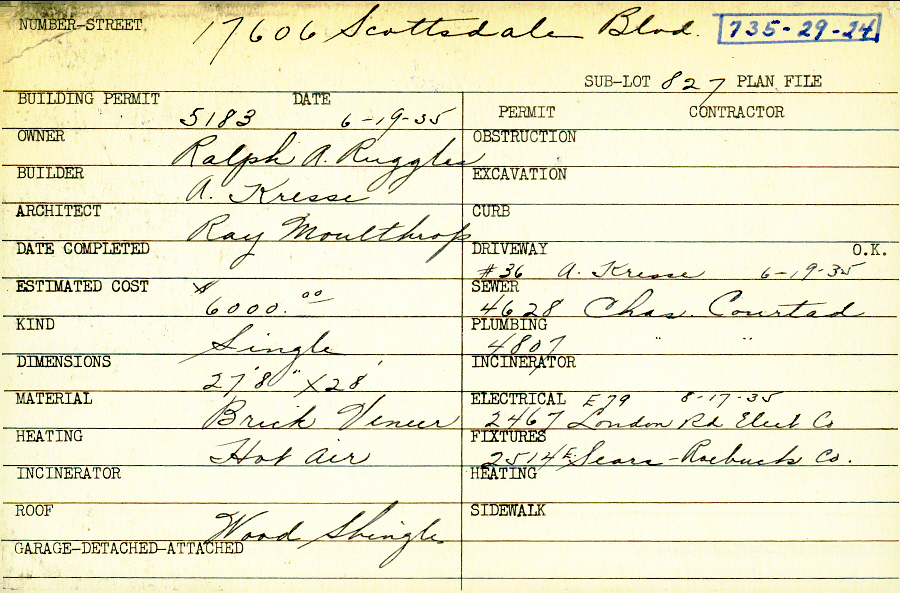 NUMBER-STREET 17606 Scottsdale Blvd. 735-29-24
SUB-LOT 827 PLAN FILE
BUILDING PERMIT 5183 DATE 6-19-35
OWNER Ralph A. Ruggles
BUILDER A. Kresse
ARCHITECT Ray Moulthrop
DATE COMPLETED
ESTIMATED COST $6000.00
KIND Single
DIMENSIONS 27'8" X 28'
MATERIAL Brick Veneer
HEATING Hot Air
INCINERATOR
ROOF Wood Shingle
GARAGE-DETACHED-ATTACHED
PERMIT CONTRACTOR
OBSTRUCTION
EXCAVATION
CURB
DRIVEWAY O.K.
#36 A. Kresse 6-19-35
SEWER
4628 Chas. Courtad
PLUMBING
4807 " "
INCINERATOR
ELECTRICAL E79 8-17-35
2467 London Rd Elect Co
FIXTURES
2514E Sears-Roebuck Co.
HEATING
SIDEWALK